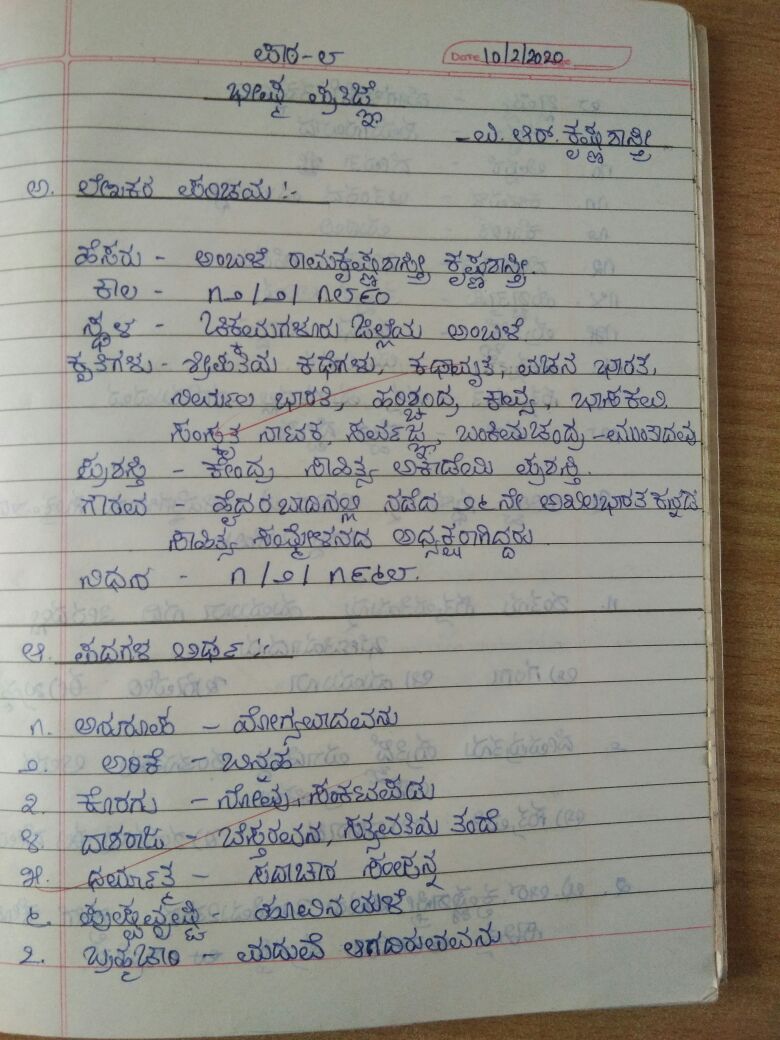 ಪಾಠ-೮
Date 10/2/2020
ಭೀಷ್ಮ ಪ್ರತಿಜ್ಞೆ
-ಎ. ಆರ್. ಕೃಷ್ಣಶಾಸ್ತ್ರೀ
ಅ. ಲೇಖಕರ ಪರಿಚಯ :-
ಹೆಸರು - ಅಂಬಳೆ ರಾಮಕೃಷ್ಣಶಾಸ್ತ್ರೀ ಕೃಷ್ಣಶಾಸ್ತ್ರೀ.
ಕಾಲ - ೧೨/೨/೧೮೯೦
ಸ್ಥಳ - ಚಿಕ್ಕಮಗಳೂರು ಜಿಲ್ಲೆಯ ಅಂಬಳೆ
ಕೃತಿಗಳು - ಶ್ರೀಪತಿಯ ಕಥೆಗಳು, ಕಥಾಮೃತ, ವಚನ ಭಾರತ,
ನಿರ್ಮಲ ಭಾರತಿ, ಹರಿಶ್ಚಂದ್ರ ಕಾವ್ಯ, ಭಾಸಕವಿ.
ಸಂಸ್ಕೃತ ನಾಟಕ, ಸರ್ವಜ್ಞ, ಬಂಕಿಮಚಂದ್ರ -ಮುಂತಾದವು
ಪ್ರಶಸ್ತಿ - ಕೇಂದ್ರ ಸಾಹಿತ್ಯ ಅಕಾಡೆಮಿ ಪ್ರಶಸ್ತಿ.
ಗೌರವ - ಹೈದರಬಾದಿನಲ್ಲಿ ನಡೆದ ೨೬ ನೇ ಅಖಿಲಭಾರತ ಕನ್ನಡ
ಸಾಹಿತ್ಯ ಸಮ್ಮೇಳನದ ಅಧ್ಯಕ್ಷರಾಗಿದ್ದರು.
ನಿಧನ - ೧/೨/೧೯೬೮.
ಆ. ಪದಗಳ ಅರ್ಥ :-
೧. ಅನುರೂಪ - ಯೋಗ್ಯವಾದವನು
೨. ಅರಿಕೆ - ಬಿನ್ನಹ
೩. ಕೊರಗು - ನೋವು, ಸಂಕಟಪಡು
೪. ದಾಶರಾಜ - ಬೆಸ್ತರವನ, ಸತ್ಯವತಿಯ ತಂದೆ
೫. ಧರ್ಮಾತ್ಮ - ಸದಾಚಾರ ಸಂಪನ್ನ
೬. ಪುಷ್ಪವೃಷ್ಟಿ - ಹೂವಿನ ಮಳೆ
೭. ಬ್ರಹ್ಮಚಾರಿ - ಮದುವೆ ಆಗದಿರುವವನು